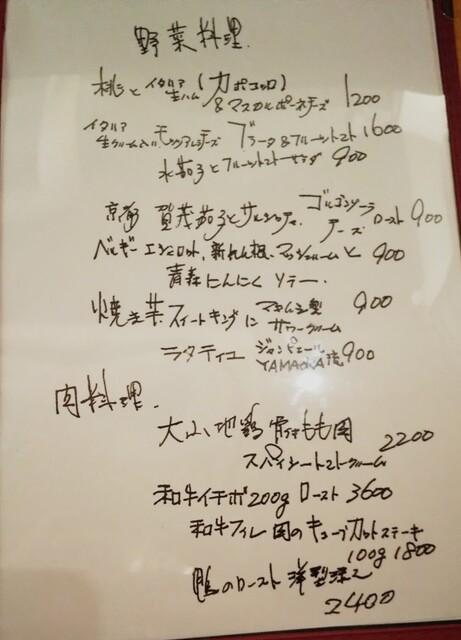 野菜料理.
桃とイタリア生ハム(カポコッロ)
&マスカルポーネチーズ 1200
イタリア
生クーム入りモッツァレラチーズ ブラータ&フルーツトマト 1600
水茄子とフルーツトマトサラダ 900
京都 賀茂茄子とサルシッチャ. ゴルゴンゾーラ
チーズ ロースト 900
ベルギーエシャロット, 新れん根, マッシュルームと 900
青森にんにくソテー.
焼き芋 スイートキングに マキシム型 900
サワークリーム
ラタティユ ジャンピエール
YAMAOKA流 900
肉料理.
大山地鶏 骨付もも肉 2200
スパイシートマトクリーム
和牛イチボ200g ロースト 3600
和牛フィレ肉のキューブカットステーキ
100g 1800
鴨のロースト
2400